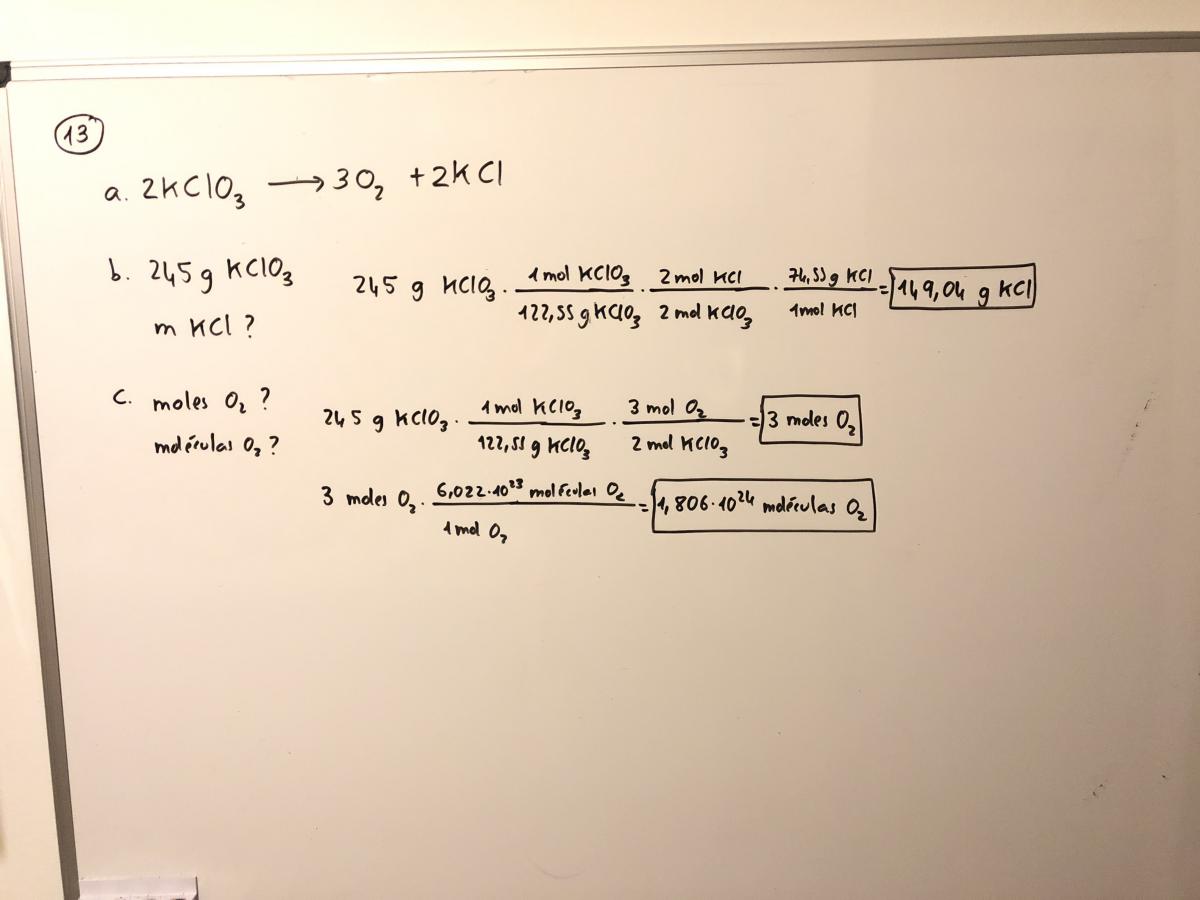 13
a. 2KClO₃ → 3O₂ + 2KCl
b. 245 g KClO₃
m KCl ?
245 g KClO₃ · 1 mol KClO₃ / 122,55 g KClO₃ · 2 mol KCl / 2 mol KClO₃ · 74,55 g KCl / 1 mol KCl = 149,04 g KCl
c. moles O₂ ?
moléculas O₂ ?
245 g KClO₃ · 1 mol KClO₃ / 122,55 g KClO₃ · 3 mol O₂ / 2 mol KClO₃ = 3 moles O₂
3 moles O₂ · 6,022·10²³ moléculas O₂ / 1 mol O₂ = 1,806·10²⁴ moléculas O₂